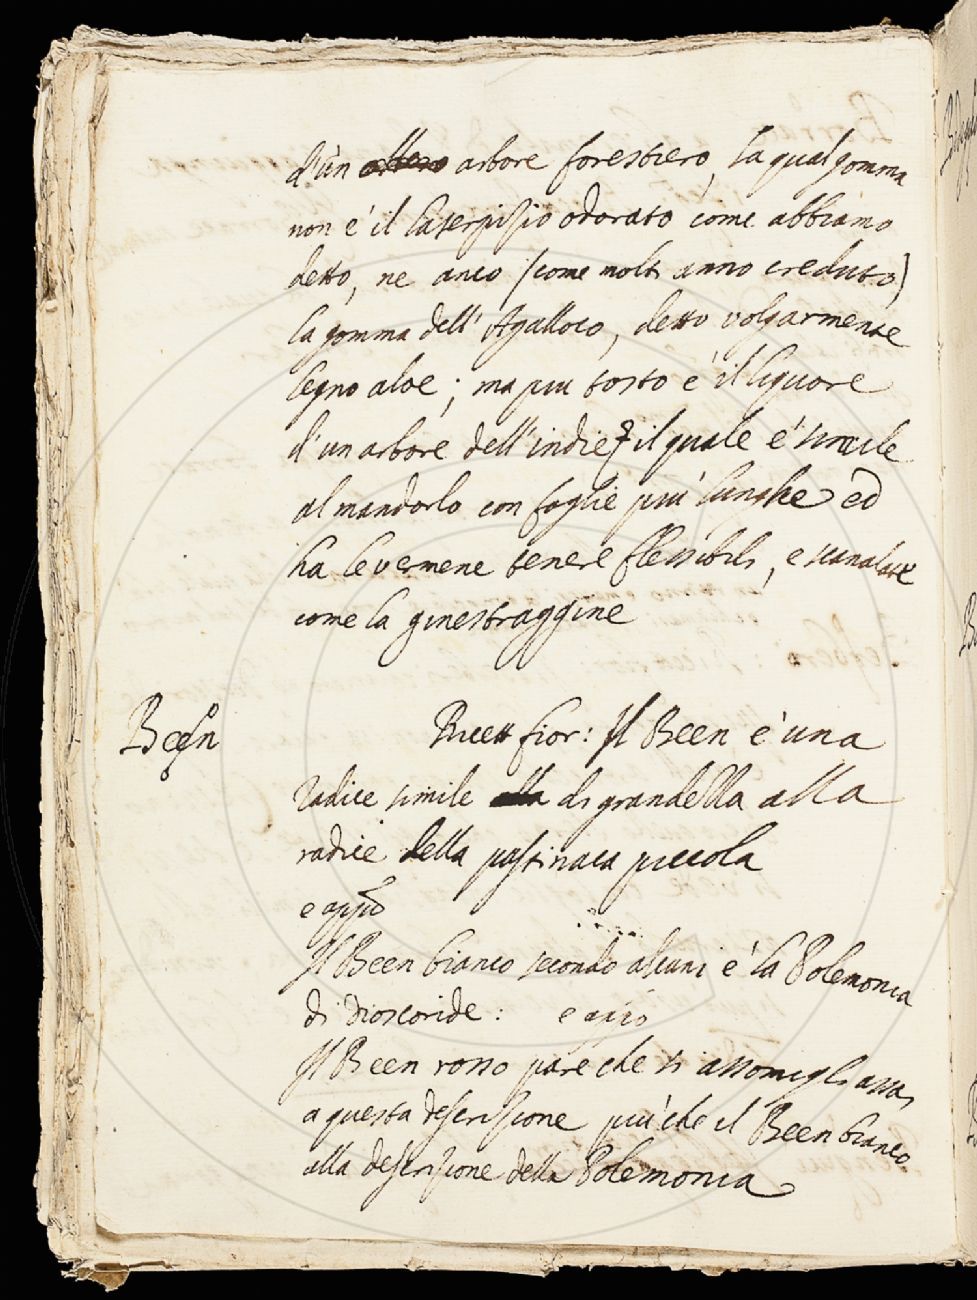 d'un arbore forestiero, la qual gomma
non é il laserpisio odorato come abbiamo
detto, ne anco (come molti anno creduto)
la gomma dell' Agalloco, detto volgarmente
legno aloe; ma piu tosto é il liquore
d'un arbore dell'indie il quale é simile
al mandorlo con foglie piú lunghe ed
ha le vermene tenere flessibili, e scanalate
come la ginestraggine
Been
Ricett fior: Il Been é una
radice simile di grandella alla
radice della pastinaca piccola
e appo
Il Been bianco secondo alcuni é la Polemonia
di Dioscoride: e appo
Il Been rosso pare che si assomigli assai
a questa descrizione piú che il Been bianco
alla descrizione della Polemonia